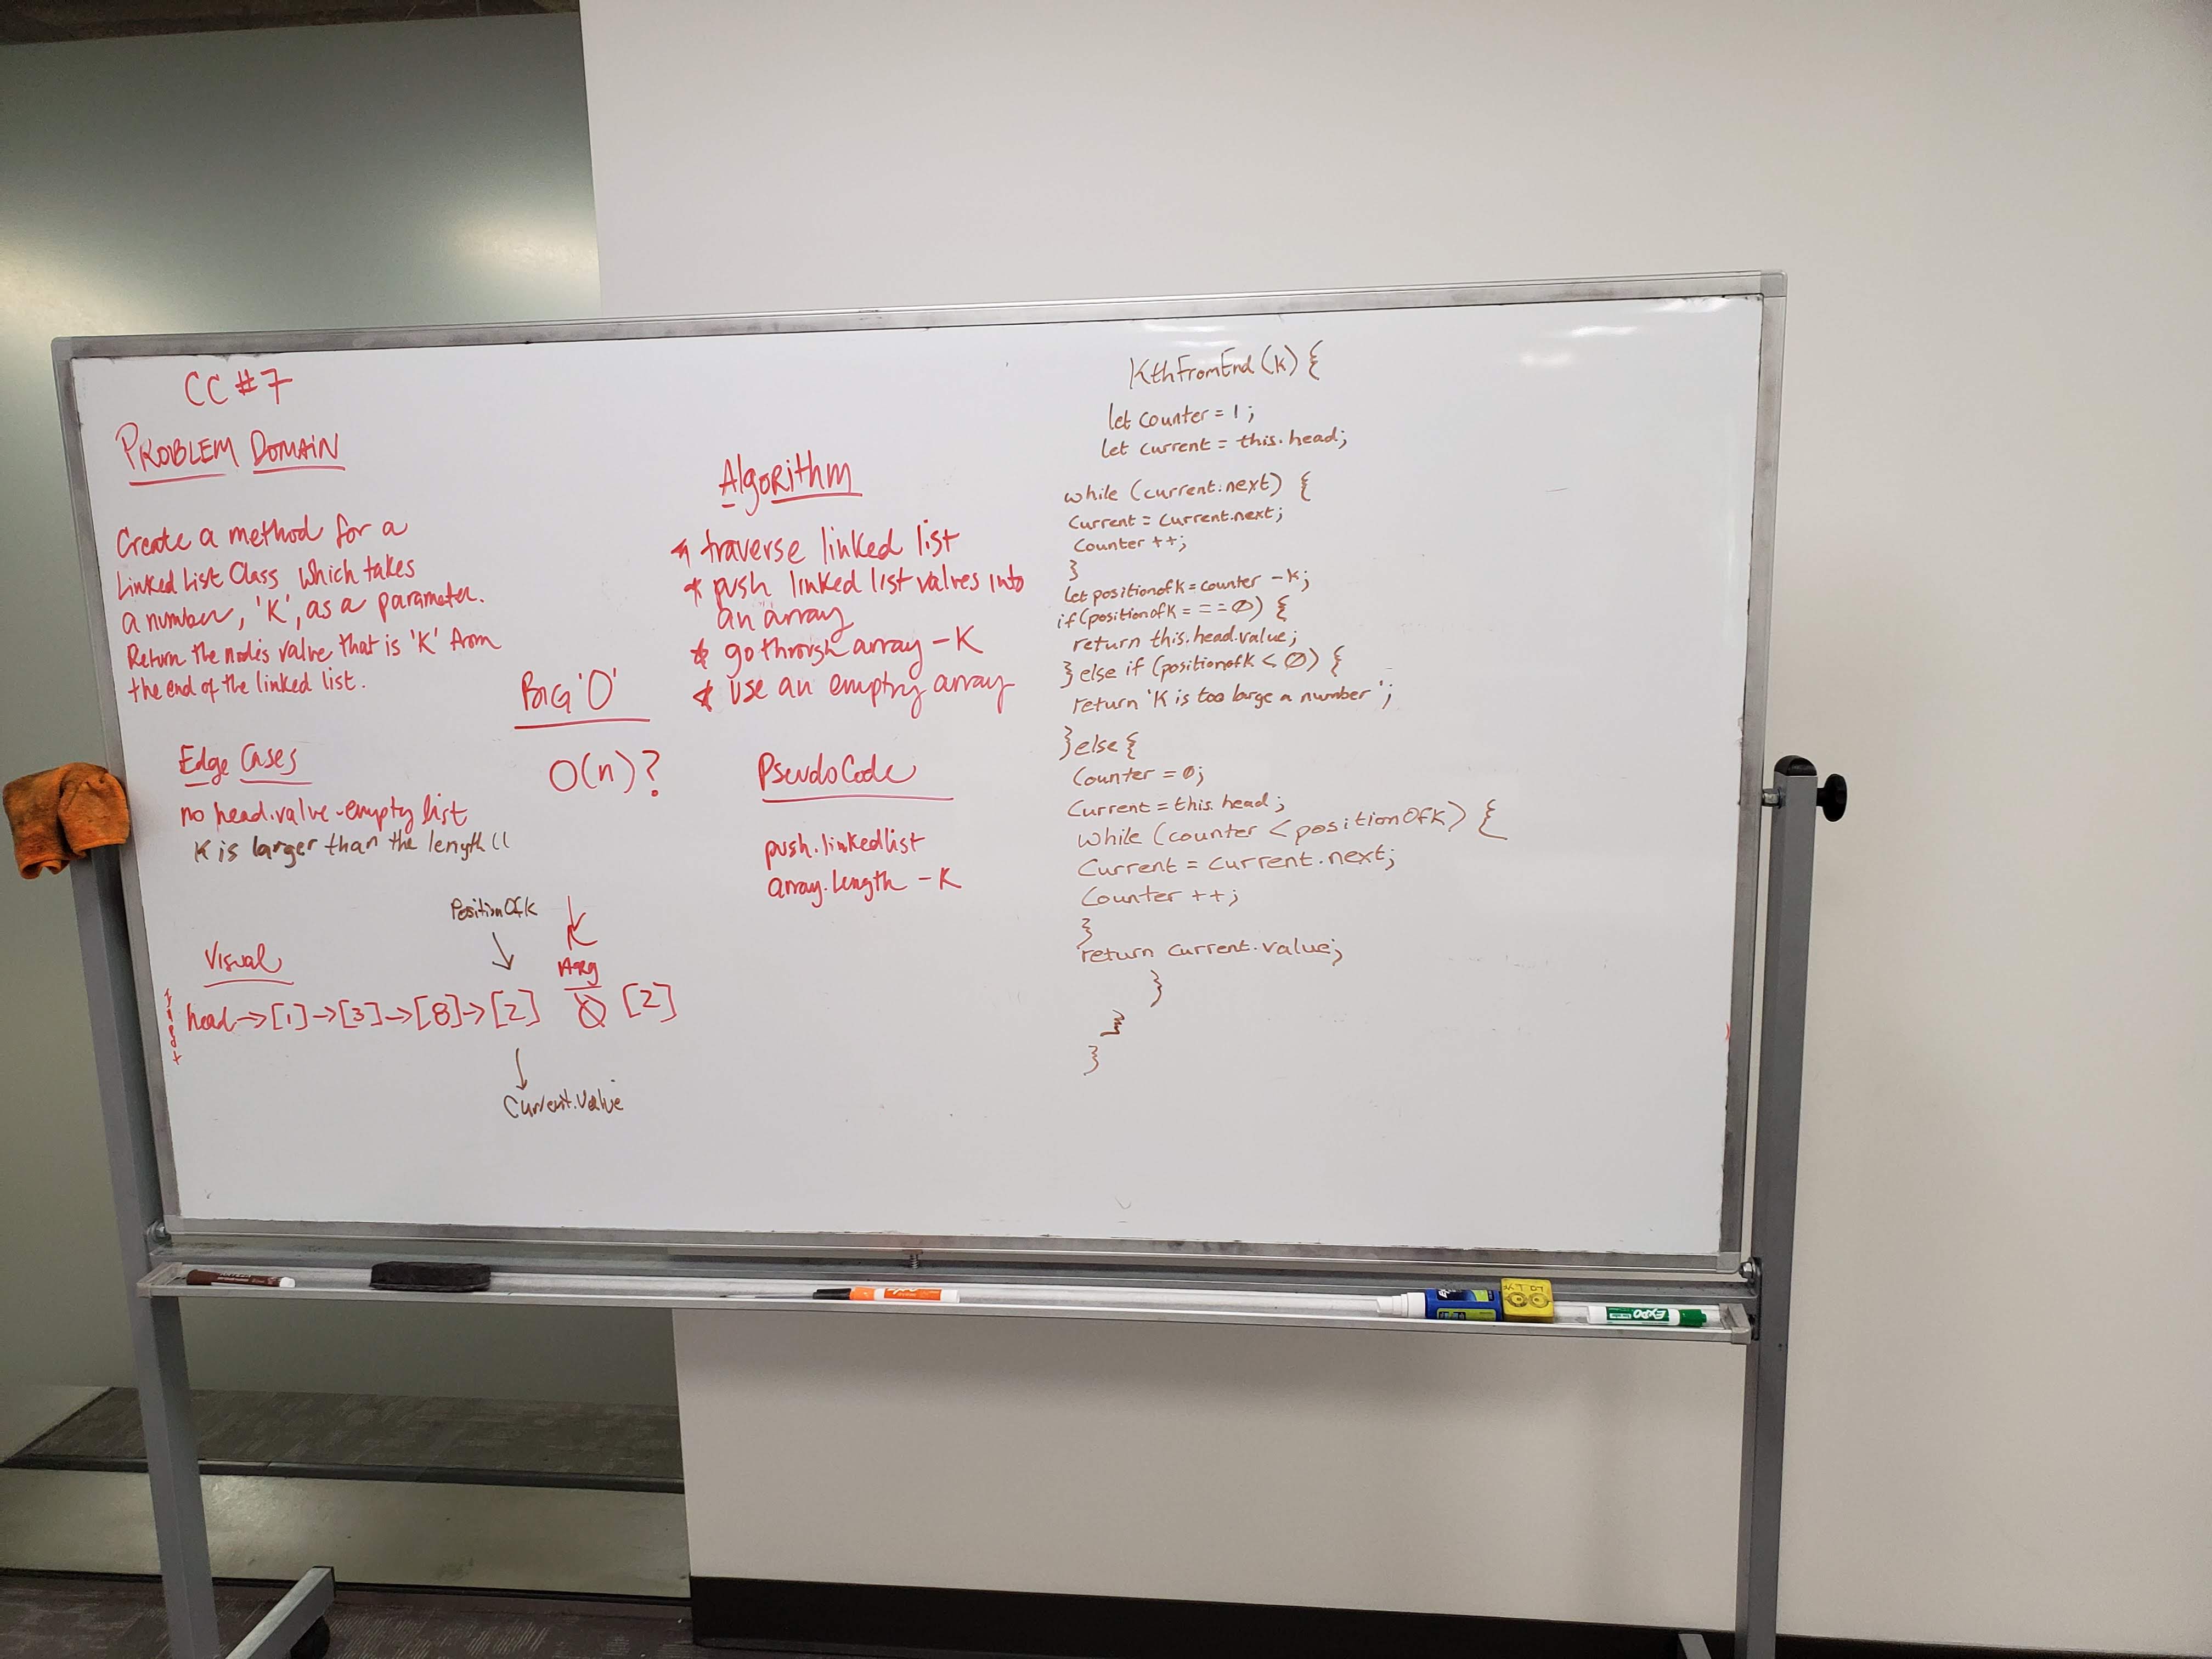 CC #7
PROBLEM DOMAIN
Create a method for a
Linked List Class which takes
a number, 'K', as a parameter.
Return the node's value that is 'K' from
the end of the linked list.
Edge Cases
no head.value - empty list
K is larger than the length LL
Visual
PositionOfK
K
Arg
input
head→[1]→[3]→[8]→[2]
0 [2]
Current.Value
BIG 'O'
O(n)?
Algorithm
* traverse linked list
* push linked list values into
an array
* go through array - K
* use an emptry array
PseudoCode
push.linkedlist
array.length - K
KthFromEnd(k) {
let counter = 1;
let current = this.head;
while (current.next) {
Current = current.next;
Counter ++;
}
let positionofk = counter - k;
if (positionofk = == 0) {
return this.head.value;
} else if (positionofk < 0) {
return 'K is too large a number';
} else {
Counter = 0;
Current = this.head;
while (counter < positionOfk) {
Current = current.next;
Counter ++;
}
return current.value;
}
}
EXPO